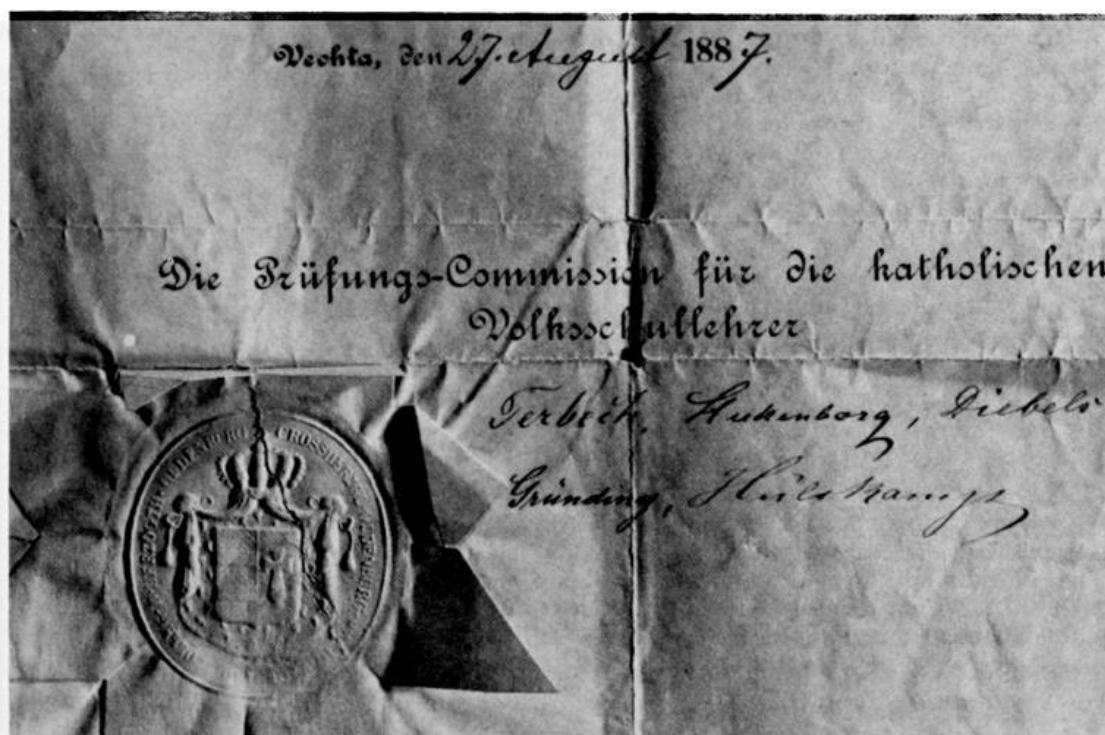 Vechta, den 27. August 1887.
Die Prüfungs-Commission für die katholischen
Volksschullehrer
Terbeck, Stukenborg, Diebels
Gründing, Hülskamp
OLDENBURG GROSSHERZ